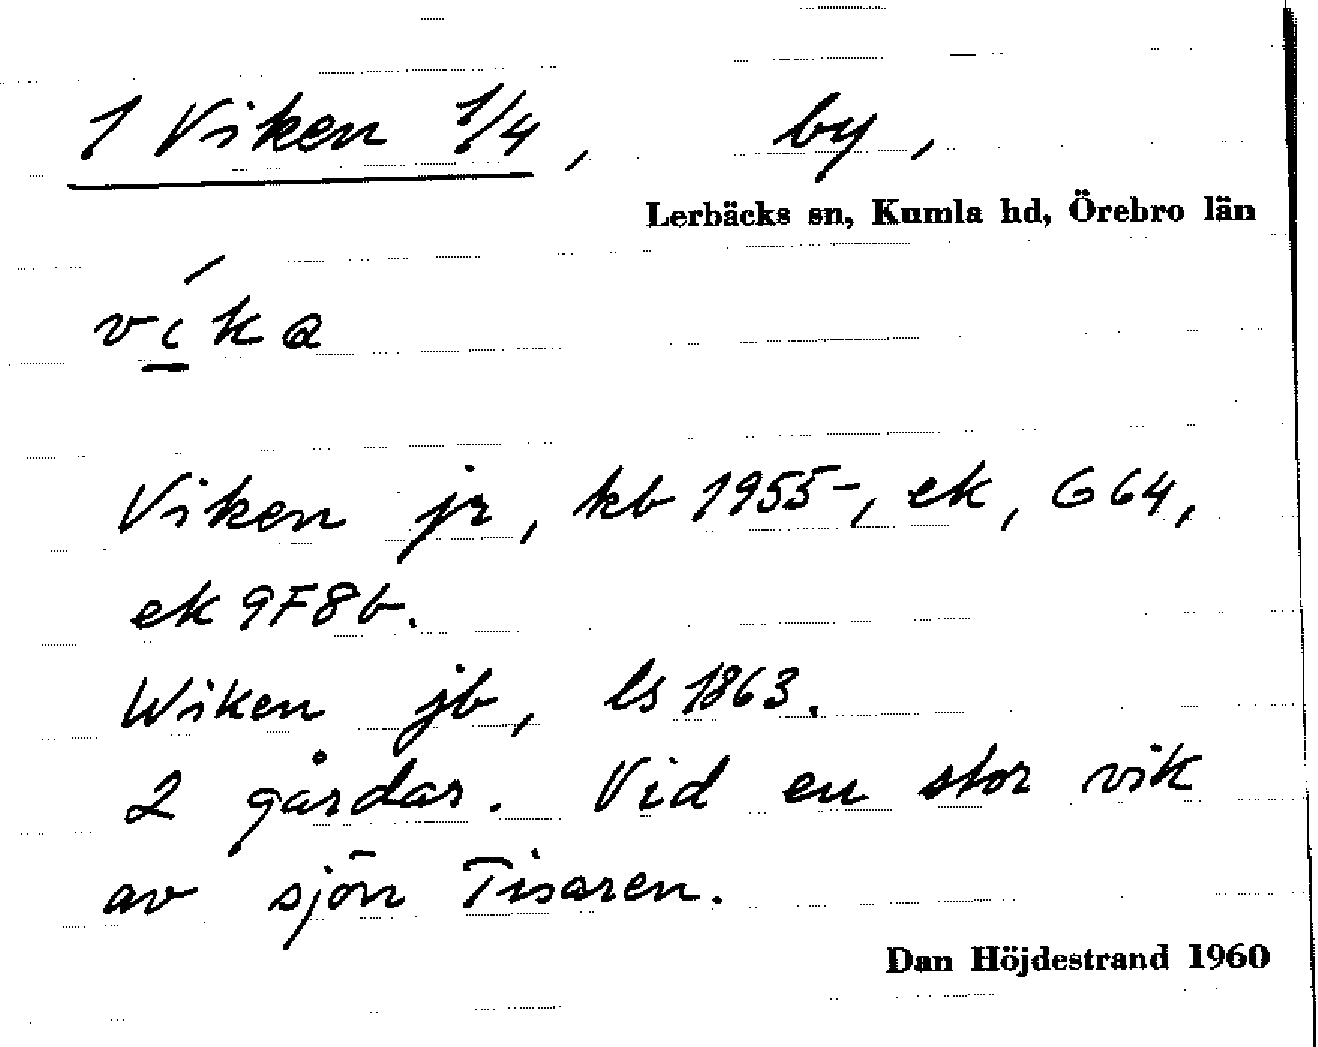 1 Viken 1/4, by,
Lerbäcks sn, Kumla hd, Örebro län
víka
Viken jr, kb 1955-, ek, G64,
ek 9F8b.
Wiken jb, ls 1863.
2 gårdar. Vid en stor vik
av sjön Tisaren.
Dan Höjdestrand 1960